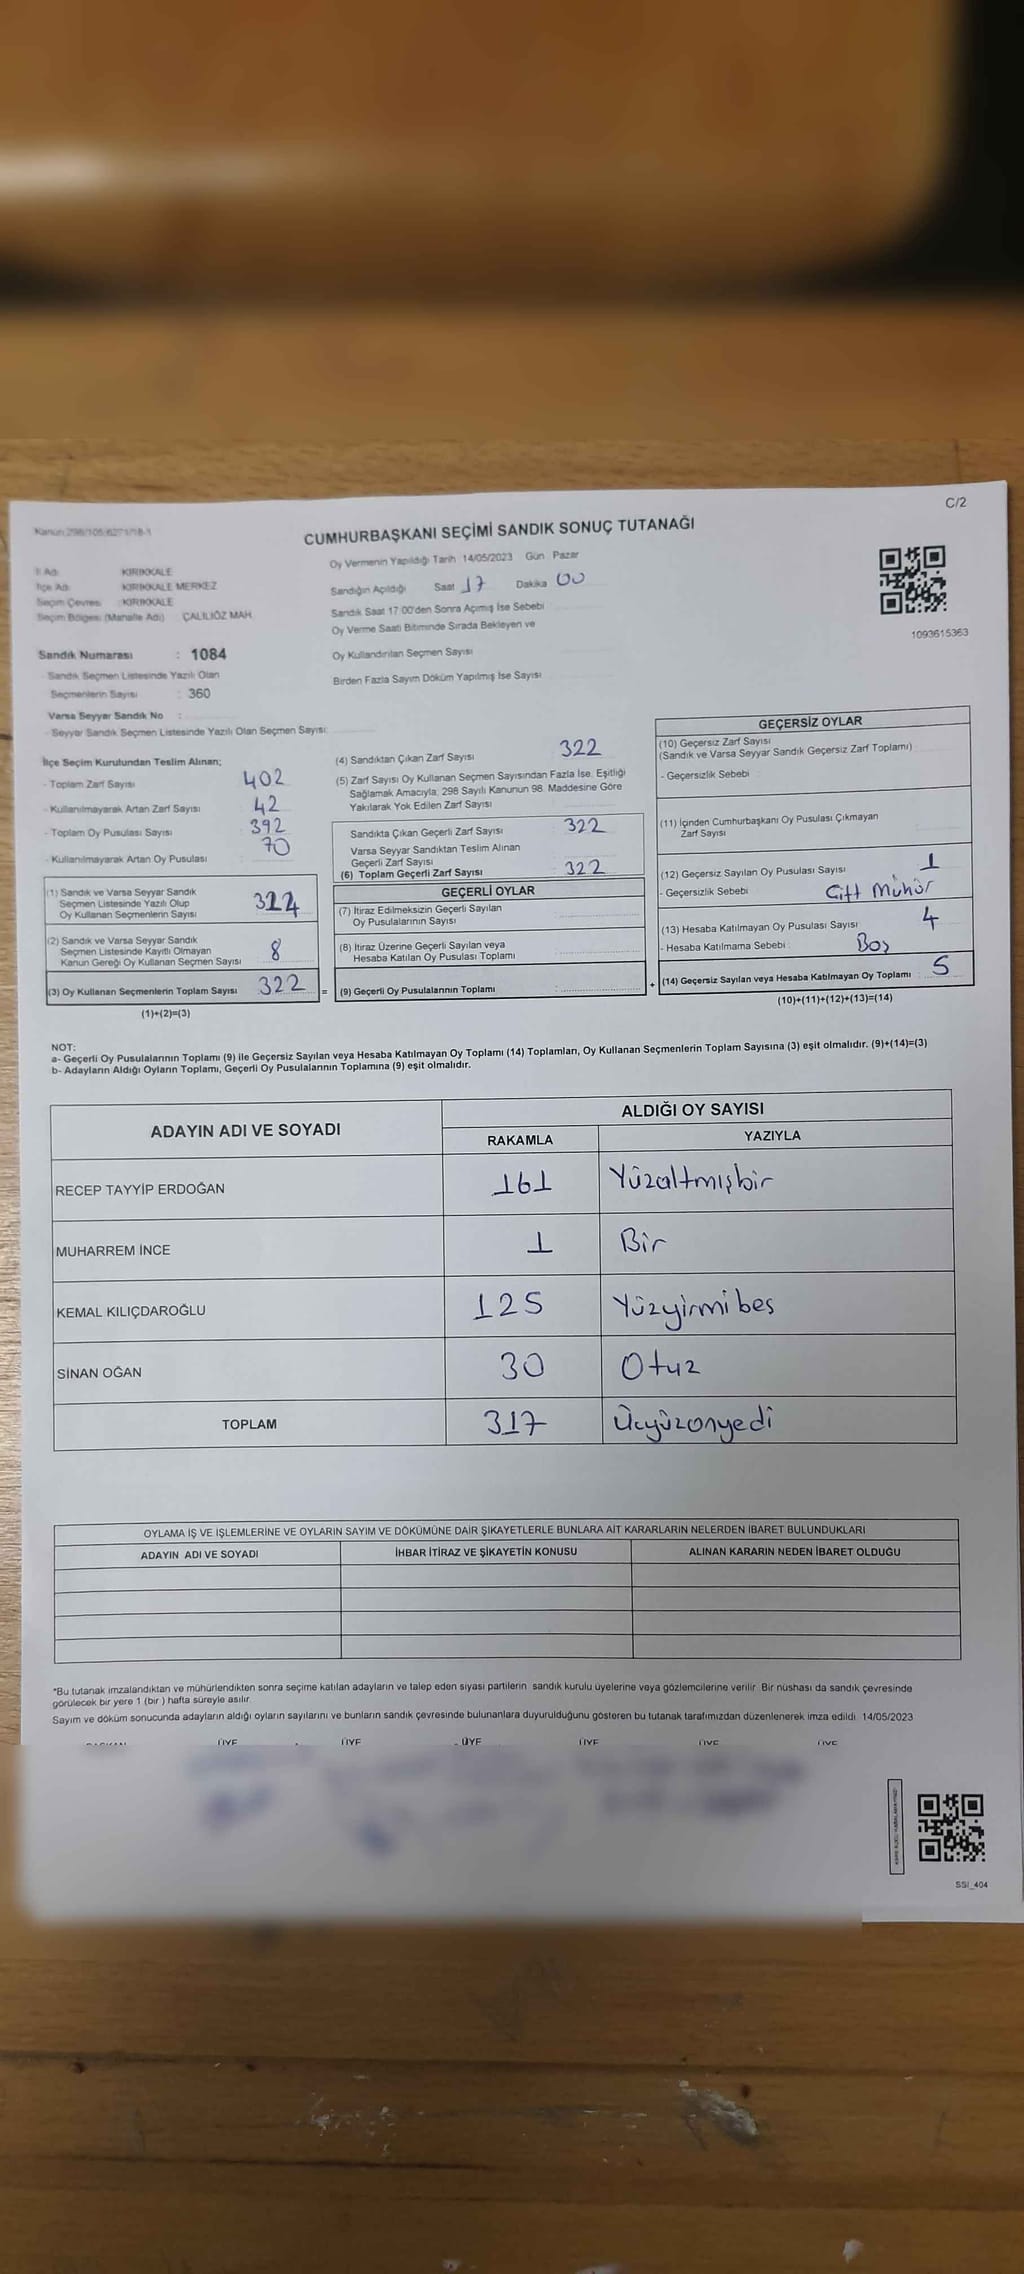 C/2
Kanun:298/105;6271/18-1
CUMHURBAŞKANI SEÇİMİ SANDIK SONUÇ TUTANAĞI
İl Adı : KIRIKKALE
İlçe Adı : KIRIKKALE MERKEZ
Seçim Çevresi : KIRIKKALE
Seçim Bölgesi (Mahalle Adı) : ÇALILIÖZ MAH.
Sandık Numarası : 1084
- Sandık Seçmen Listesinde Yazılı Olan
Seçmenlerin Sayısı : 360
Varsa Seyyar Sandık No :
- Seyyar Sandık Seçmen Listesinde Yazılı Olan Seçmen Sayısı:
Oy Vermenin Yapıldığı Tarih 14/05/2023 Gün Pazar
Sandığın Açıldığı Saat 17 Dakika 00
Sandık Saat 17.00'den Sonra Açımış İse Sebebi
Oy Verme Saati Bitiminde Sırada Bekleyen ve
Oy Kullandırılan Seçmen Sayısı
Birden Fazla Sayım Döküm Yapılmış İse Sayısı
1093615363
İlçe Seçim Kurulundan Teslim Alınan;
- Toplam Zarf Sayısı 402
- Kullanılmayarak Artan Zarf Sayısı 42
- Toplam Oy Pusulası Sayısı 392
- Kullanılmayarak Artan Oy Pusulası 70
(1) Sandık ve Varsa Seyyar Sandık
Seçmen Listesinde Yazılı Olup
Oy Kullanan Seçmenlerin Sayısı
(2) Sandık ve Varsa Seyyar Sandık
Seçmen Listesinde Kayıtlı Olmayan
Kanun Gereği Oy Kullanan Seçmen Sayısı 8
(3) Oy Kullanan Seçmenlerin Toplam Sayısı 322 =
(1)+(2)=(3)
(4) Sandıktan Çıkan Zarf Sayısı 322
(5) Zarf Sayısı Oy Kullanan Seçmen Sayısından Fazla İse, Eşitliği
Sağlamak Amacıyla, 298 Sayılı Kanunun 98. Maddesine Göre
Yakılarak Yok Edilen Zarf Sayısı
Sandıkta Çıkan Geçerli Zarf Sayısı 322
Varsa Seyyar Sandıktan Teslim Alınan
Geçerli Zarf Sayısı
(6) Toplam Geçerli Zarf Sayısı 322
GEÇERLİ OYLAR
(7) İtiraz Edilmeksizin Geçerli Sayılan
Oy Pusulalarının Sayısı
(8) İtiraz Üzerine Geçerli Sayılan veya
Hesaba Katılan Oy Pusulası Toplamı
(9) Geçerli Oy Pusulalarının Toplamı : +
GEÇERSİZ OYLAR
(10) Geçersiz Zarf Sayısı
(Sandık ve Varsa Seyyar Sandık Geçersiz Zarf Toplamı)
- Geçersizlik Sebebi
(11) İçinden Cumhurbaşkanı Oy Pusulası Çıkmayan
Zarf Sayısı
(12) Geçersiz Sayılan Oy Pusulası Sayısı 1
- Geçersizlik Sebebi Çift Mühür
(13) Hesaba Katılmayan Oy Pusulası Sayısı 4
- Hesaba Katılmama Sebebi : Boş
(14) Geçersiz Sayılan veya Hesaba Katılmayan Oy Toplamı : 5
(10)+(11)+(12)+(13)=(14)
NOT:
a- Geçerli Oy Pusulalarının Toplamı (9) ile Geçersiz Sayılan veya Hesaba Katılmayan Oy Toplamı (14) Toplamları, Oy Kullanan Seçmenlerin Toplam Sayısına (3) eşit olmalıdır. (9)+(14)=(3)
b- Adayların Aldığı Oyların Toplamı, Geçerli Oy Pusulalarının Toplamına (9) eşit olmalıdır.
ADAYIN ADI VE SOYADI ALDIĞI OY SAYISI
RAKAMLA YAZIYLA
RECEP TAYYİP ERDOĞAN 161 Yüzaltmışbir
MUHARREM İNCE 1 Bir
KEMAL KILIÇDAROĞLU 125 Yüzyirmibeş
SİNAN OĞAN 30 Otuz
TOPLAM 317 Üçyüzonyedi
OYLAMA İŞ VE İŞLEMLERİNE VE OYLARIN SAYIM VE DÖKÜMÜNE DAİR ŞİKAYETLERLE BUNLARA AİT KARARLARIN NELERDEN İBARET BULUNDUKLARI
ADAYIN ADI VE SOYADI İHBAR İTİRAZ VE ŞİKAYETİN KONUSU ALINAN KARARIN NEDEN İBARET OLDUĞU
*Bu tutanak imzalandıktan ve mühürlendikten sonra seçime katılan adayların ve talep eden siyasi partilerin sandık kurulu üyelerine veya gözlemcilerine verilir. Bir nüshası da sandık çevresinde
görülecek bir yere 1 (bir ) hafta süreyle asılır.
Sayım ve döküm sonucunda adayların aldığı oyların sayılarını ve bunların sandık çevresinde bulunanlara duyurulduğunu gösteren bu tutanak tarafımızdan düzenlenerek imza edildi. 14/05/2023
BAŞKAN ÜYE ÜYE ÜYE ÜYE ÜYE ÜYE
SSI_404